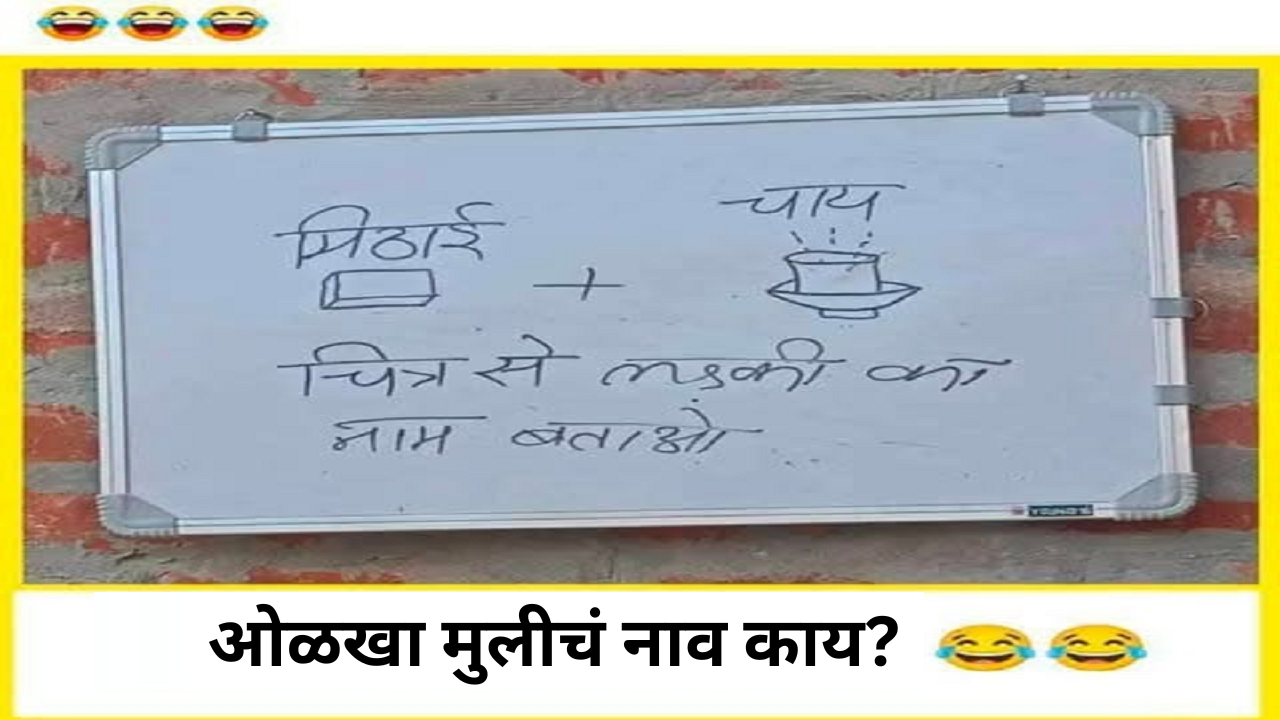 😂😂😂
चाय
मिठाई
+
चित्र से लड़की का
नाम बताओ
ओळखा मुलीचं नाव काय? 😂😂